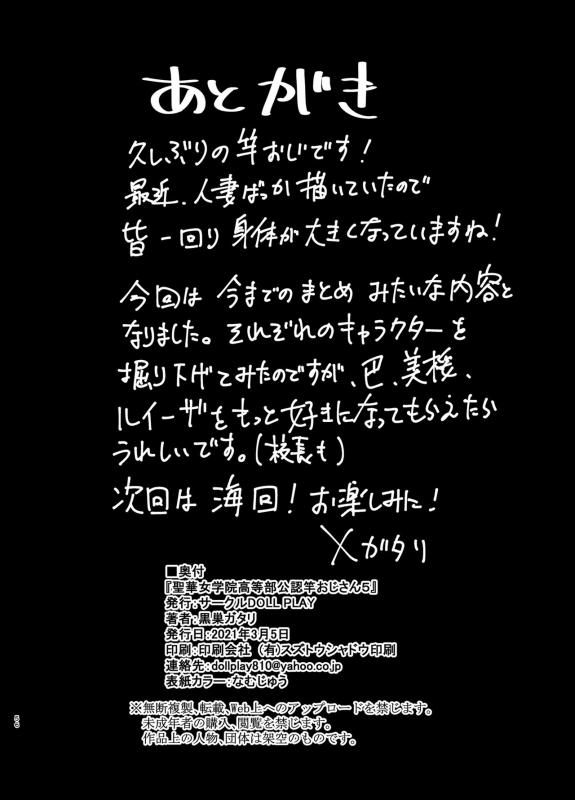 あとがき
久しぶりの竿おじです！
最近、人妻ばっか描いていたので
皆一回り身体が大きくなっていますね！
今回は今までのまとめみたいな内容と
なりました。それぞれのキャラクターを
掘り下げてみたのですが、巴、美援、
ルイーザをもっと好きになってもらえたら
うれしいです。(校長も)
次回は海回！お楽しみに！
メガタリ
■奥付
『聖華女学院高等部公認竿おじさん5』
発行：サークルDOLL PLAY
著者：黒巣ガタリ
発行日：2021年3月5日
印刷：印刷会社　(有)スズトウシャドウ印刷
連絡先：dollplay810@yahoo.co.jp
表紙カラー：なむじゅう
※無断複製、転載、Web上へのアップロードを禁じます。
未成年者の購入、閲覧を禁じます。
作品上の人物、団体は架空のものです。
56